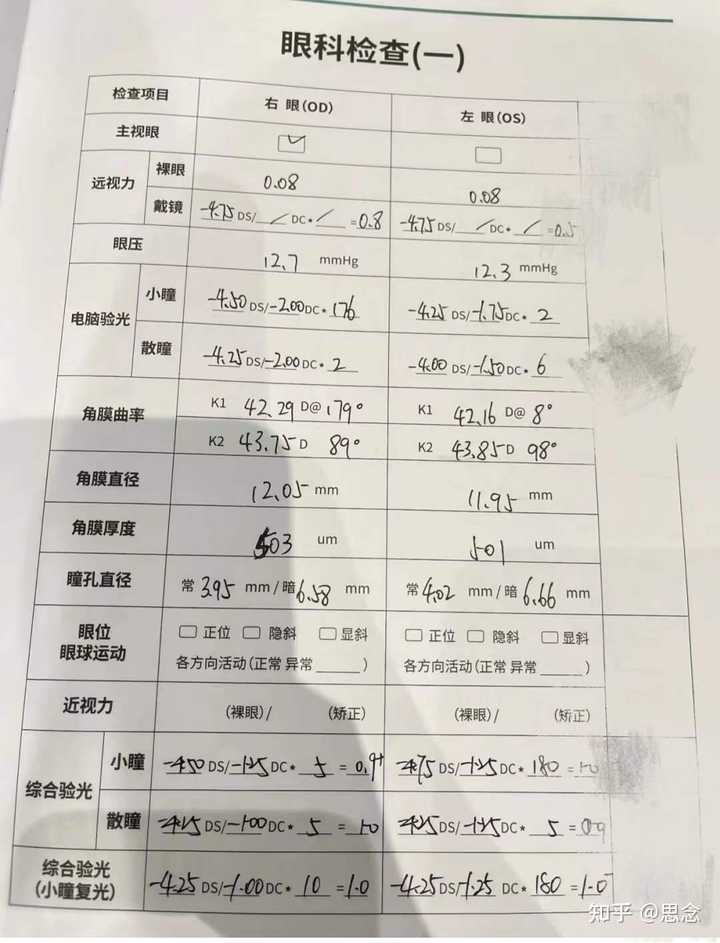 眼科检查(一)
检查项目 右 眼(OD) 左 眼(OS)
主视眼
远视力 裸眼 0.08 0.08
戴镜 -4.75 DS/ / DC* / =0.8 -4.75 DS/ / DC* / =0.5
眼压 12.7 mmHg 12.3 mmHg
电脑验光 小瞳 -4.50 DS/-2.00 DC* 176 -4.25 DS/-1.75 DC* 2
散瞳 -4.25 DS/-2.00 DC* 2 -4.00 DS/-1.50 DC* 6
角膜曲率 K1 42.29 D@ 179° K1 42.16 D@ 8°
K2 43.75 D 89° K2 43.85 D 98°
角膜直径 12.05 mm 11.95 mm
角膜厚度 503 um 501 um
瞳孔直径 常 3.95 mm / 暗 6.58 mm 常 4.02 mm / 暗 6.66 mm
眼位 眼球运动 正位 隐斜 显斜 正位 隐斜 显斜
各方向活动(正常 异常______) 各方向活动(正常 异常______)
近视力 (裸眼) / (矫正) (裸眼) / (矫正)
综合验光 小瞳 -4.50 DS/-1.25 DC* 5 = 0.9+ -4.75 DS/-1.25 DC* 180 = 1.0
散瞳 -4.25 DS/-1.00 DC* 5 = 1.0 -4.25 DS/-1.25 DC* 5 = 0.9
综合验光 (小瞳复光) -4.25 DS/-1.00 DC* 10 = 1.0 -4.25 DS/-1.25 DC* 180 = 1.0
知乎 @思念